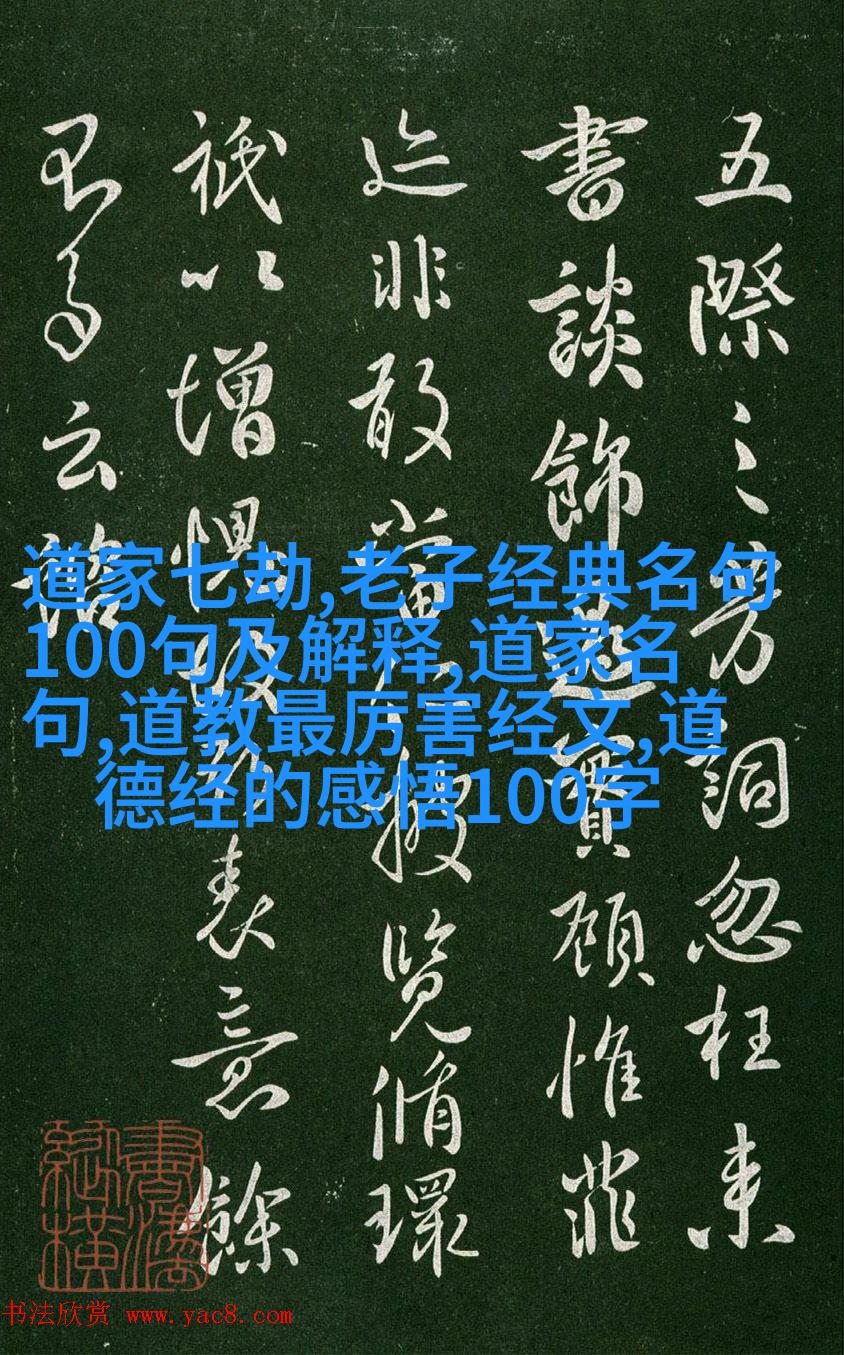 五際之芳詞忽枉来
書談飾過實顧惟菲
迹非敢當覽循環
祇以增懼表意餘
云
道家七劫,老子经典名句
100句及解释,道家名
句,道教最厉害经文,道
德经的感悟100字
書法欣赏 www.yac8.com